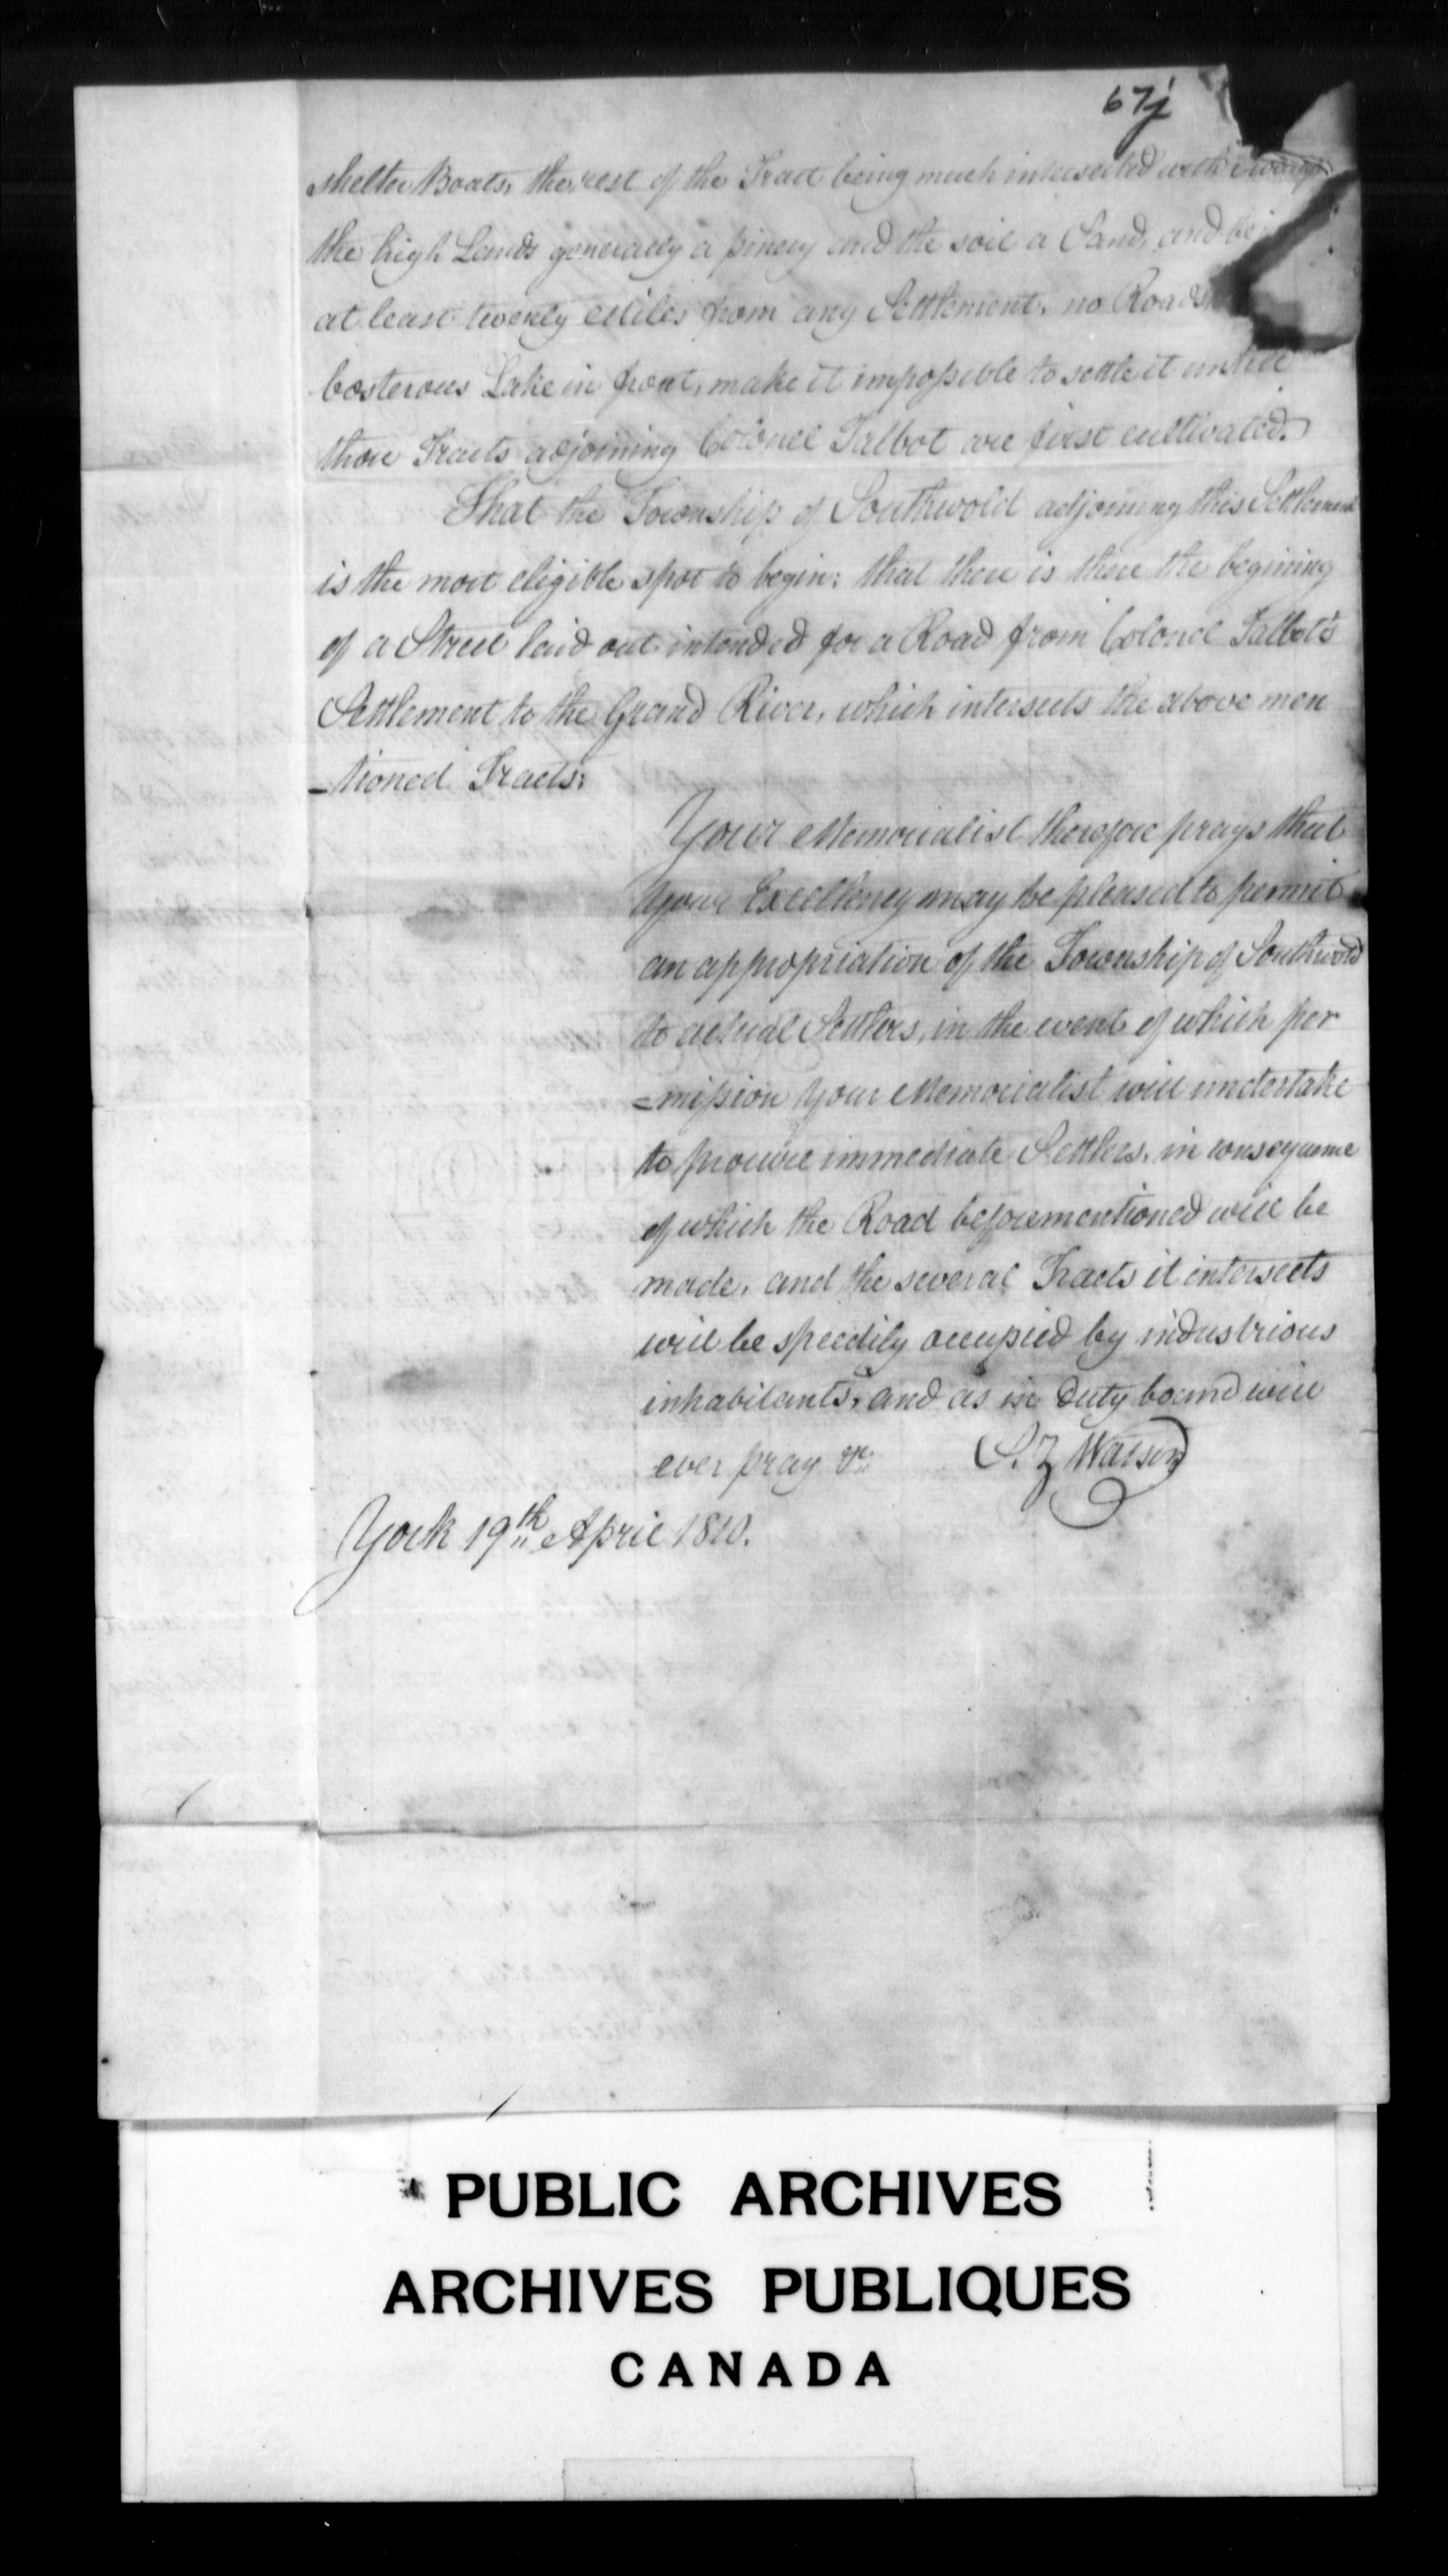 67j
shelter Boats, the rest of the Tract being much intersected with
the high Lands generally a pinery and the soil a Sand, and
at least twenty Miles from any Settlement, no Roads
bosterous Lake in front, make it impossible to settle it untill
those Tracts adjoining Colonel Talbot are first cultivated.
That the Township of Southwold adjoining this Settlement
is the most eligible spot to begin: that there is there the begining
of a Street laid out intended for a Road from Colonel Talbot's
Settlement to the Grand River, which intersects the above men
-tioned Tracts:
Your Memorialist therefore prays that
Your Excellency may be pleased to permit
an appropriation of the Township of Southwold
to actual Settlers, in the event of which per
=mission Your Memorialist will undertake
to procure immediate Settlers, in consequence
of which the Road beforementioned will be
made, and the several Tracts it intersects
will be speedily occupied by industrious
inhabitants, and as in Duty bound will
ever pray &c S. Z Watson
York 19th April 1810.
PUBLIC ARCHIVES
ARCHIVES PUBLIQUES
CANADA